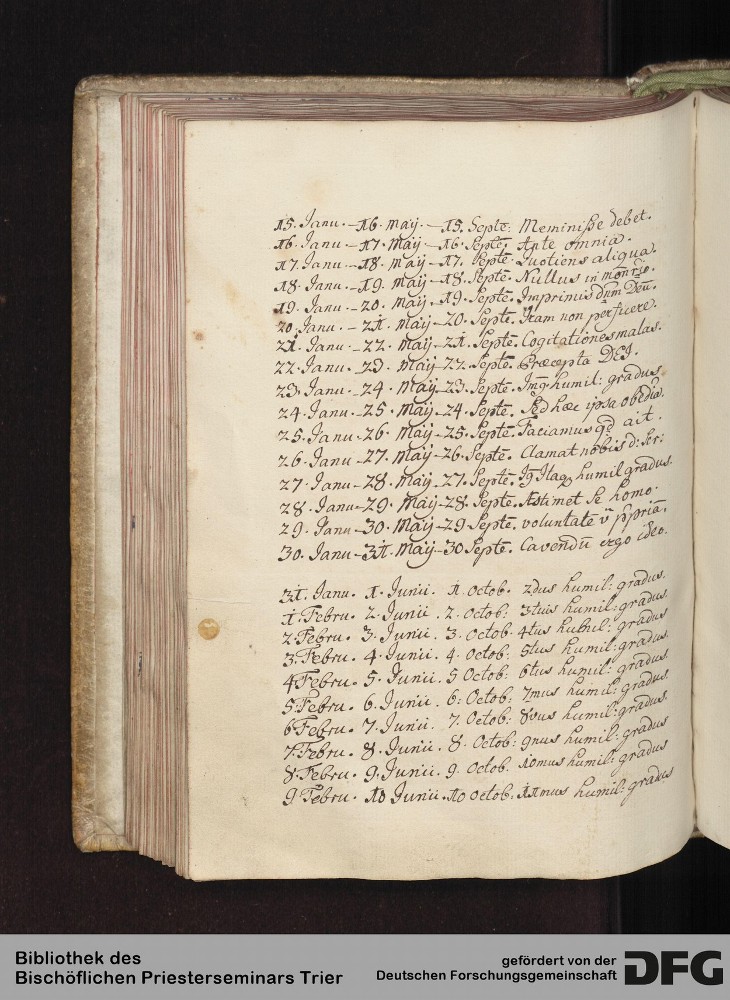 15. Janu. – 16. Maÿ. – 15. Septe: Meminisse debet.
16. Janu. – 17. Maÿ – 16. Septe. Apte omnia.
17. Janu. – 18. Maÿ – 17. Septe. Quotiens aliqua.
18. Janu. – 19. Maÿ – 18. Septe. Nullus in monrio.
19. Janu. – 20. Maÿ – 19. Septe. Imprimis dum Deu.
20. Janu. – 21. Maÿ – 20. Septe. Jtam non perficere.
21. Janu. – 22. Maÿ – 21. Septe. Cogitationes malas.
22. Janu. 23. Maÿ – 22. Septe. Præcepta DEI.
23. Janu. – 24. Maÿ – 23. Septe. humil: gradus
24. Janu. – 25. Maÿ – 24. Septe. Sed hæc ipsa obedia.
25. Janu. 26. Maÿ – 25. Septe. Faciamus qd ait.
26. Janu. 27. Maÿ – 26. Septe. Clamat nobis d: scr:
27. Janu – 28. Maÿ – 27. Septe. Itaq humil gradus.
28. Janu – 29. Maÿ – 28. Septe. Æstimet se homo.
29. Janu – 30. Maÿ – 29 Septe. voluntate v ppriã.
30. Janu – 31. Maÿ – 30 Septe. Cavendu ergo ideo.
31. Janu. 1. Junii. 1. Octob. 2dus humil: gradus.
1. Febru. 2. Junii. 2. Octob: 3tius humil: gradus.
2. Febru. 3. Junii. 3. Octob. 4tus humil: gradus
3. Febru. 4. Junii. 4. Octob: 5tus humil: gradus.
4 Febru. 5. Junii. 5 Octob: 6tus humil: gradus
5. Febru. 6. Junii. 6: Octob: 7mus humil: gradus.
6 Febru. 7. Junii. 7. Octob: 8vus humil: gradus.
7. Febru. 8. Junii. 8. Octob: 9nus humil: gradus
8. Febru. 9. Junii. 9. Octob. 10mus humil: gradus
9 Febru. 10 Junii. 10 Octob. 11mus humil: gradus
Bibliothek des
Bischöflichen Priesterseminars Trier
gefördert von der
Deutschen Forschungsgemeinschaft
DFG